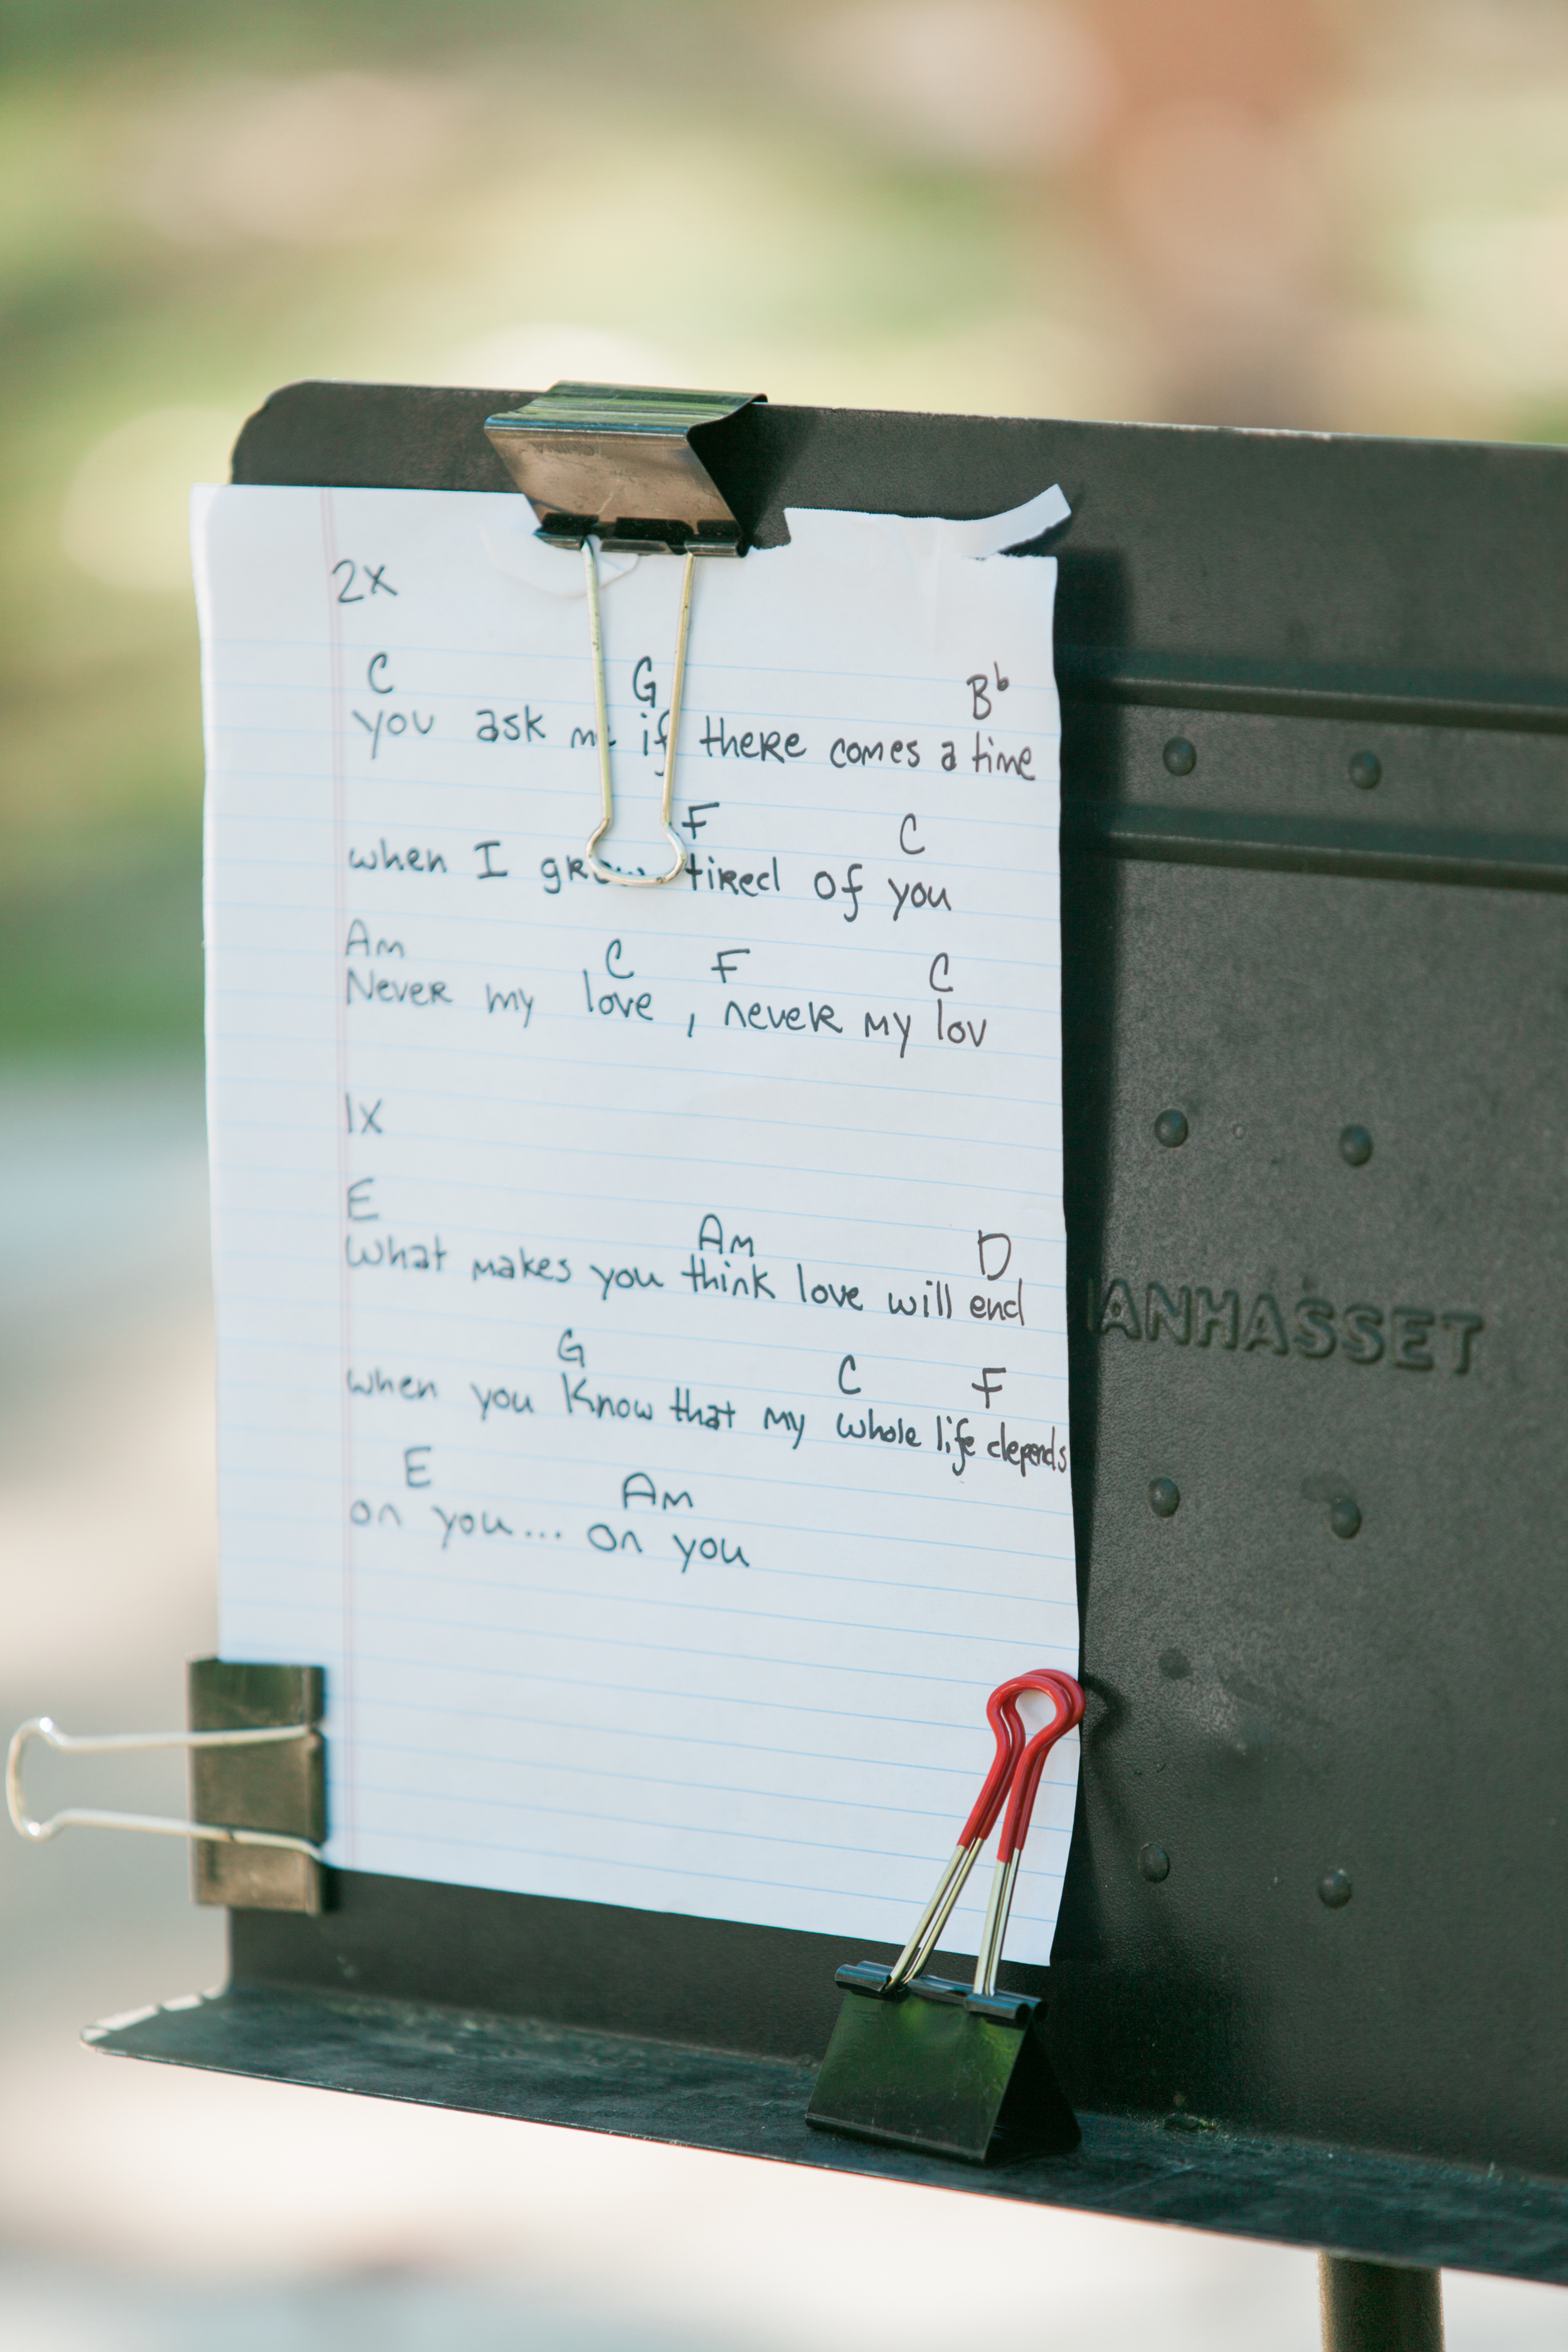 2X
C G Bb
you ask me if there comes a time
F C
when I grow tired of you
Am C F C
Never my love, never my lov
1X
E Am D
What makes you think love will end
G C F
when you know that my whole life depends
E Am
on you... on you
ANHASSET